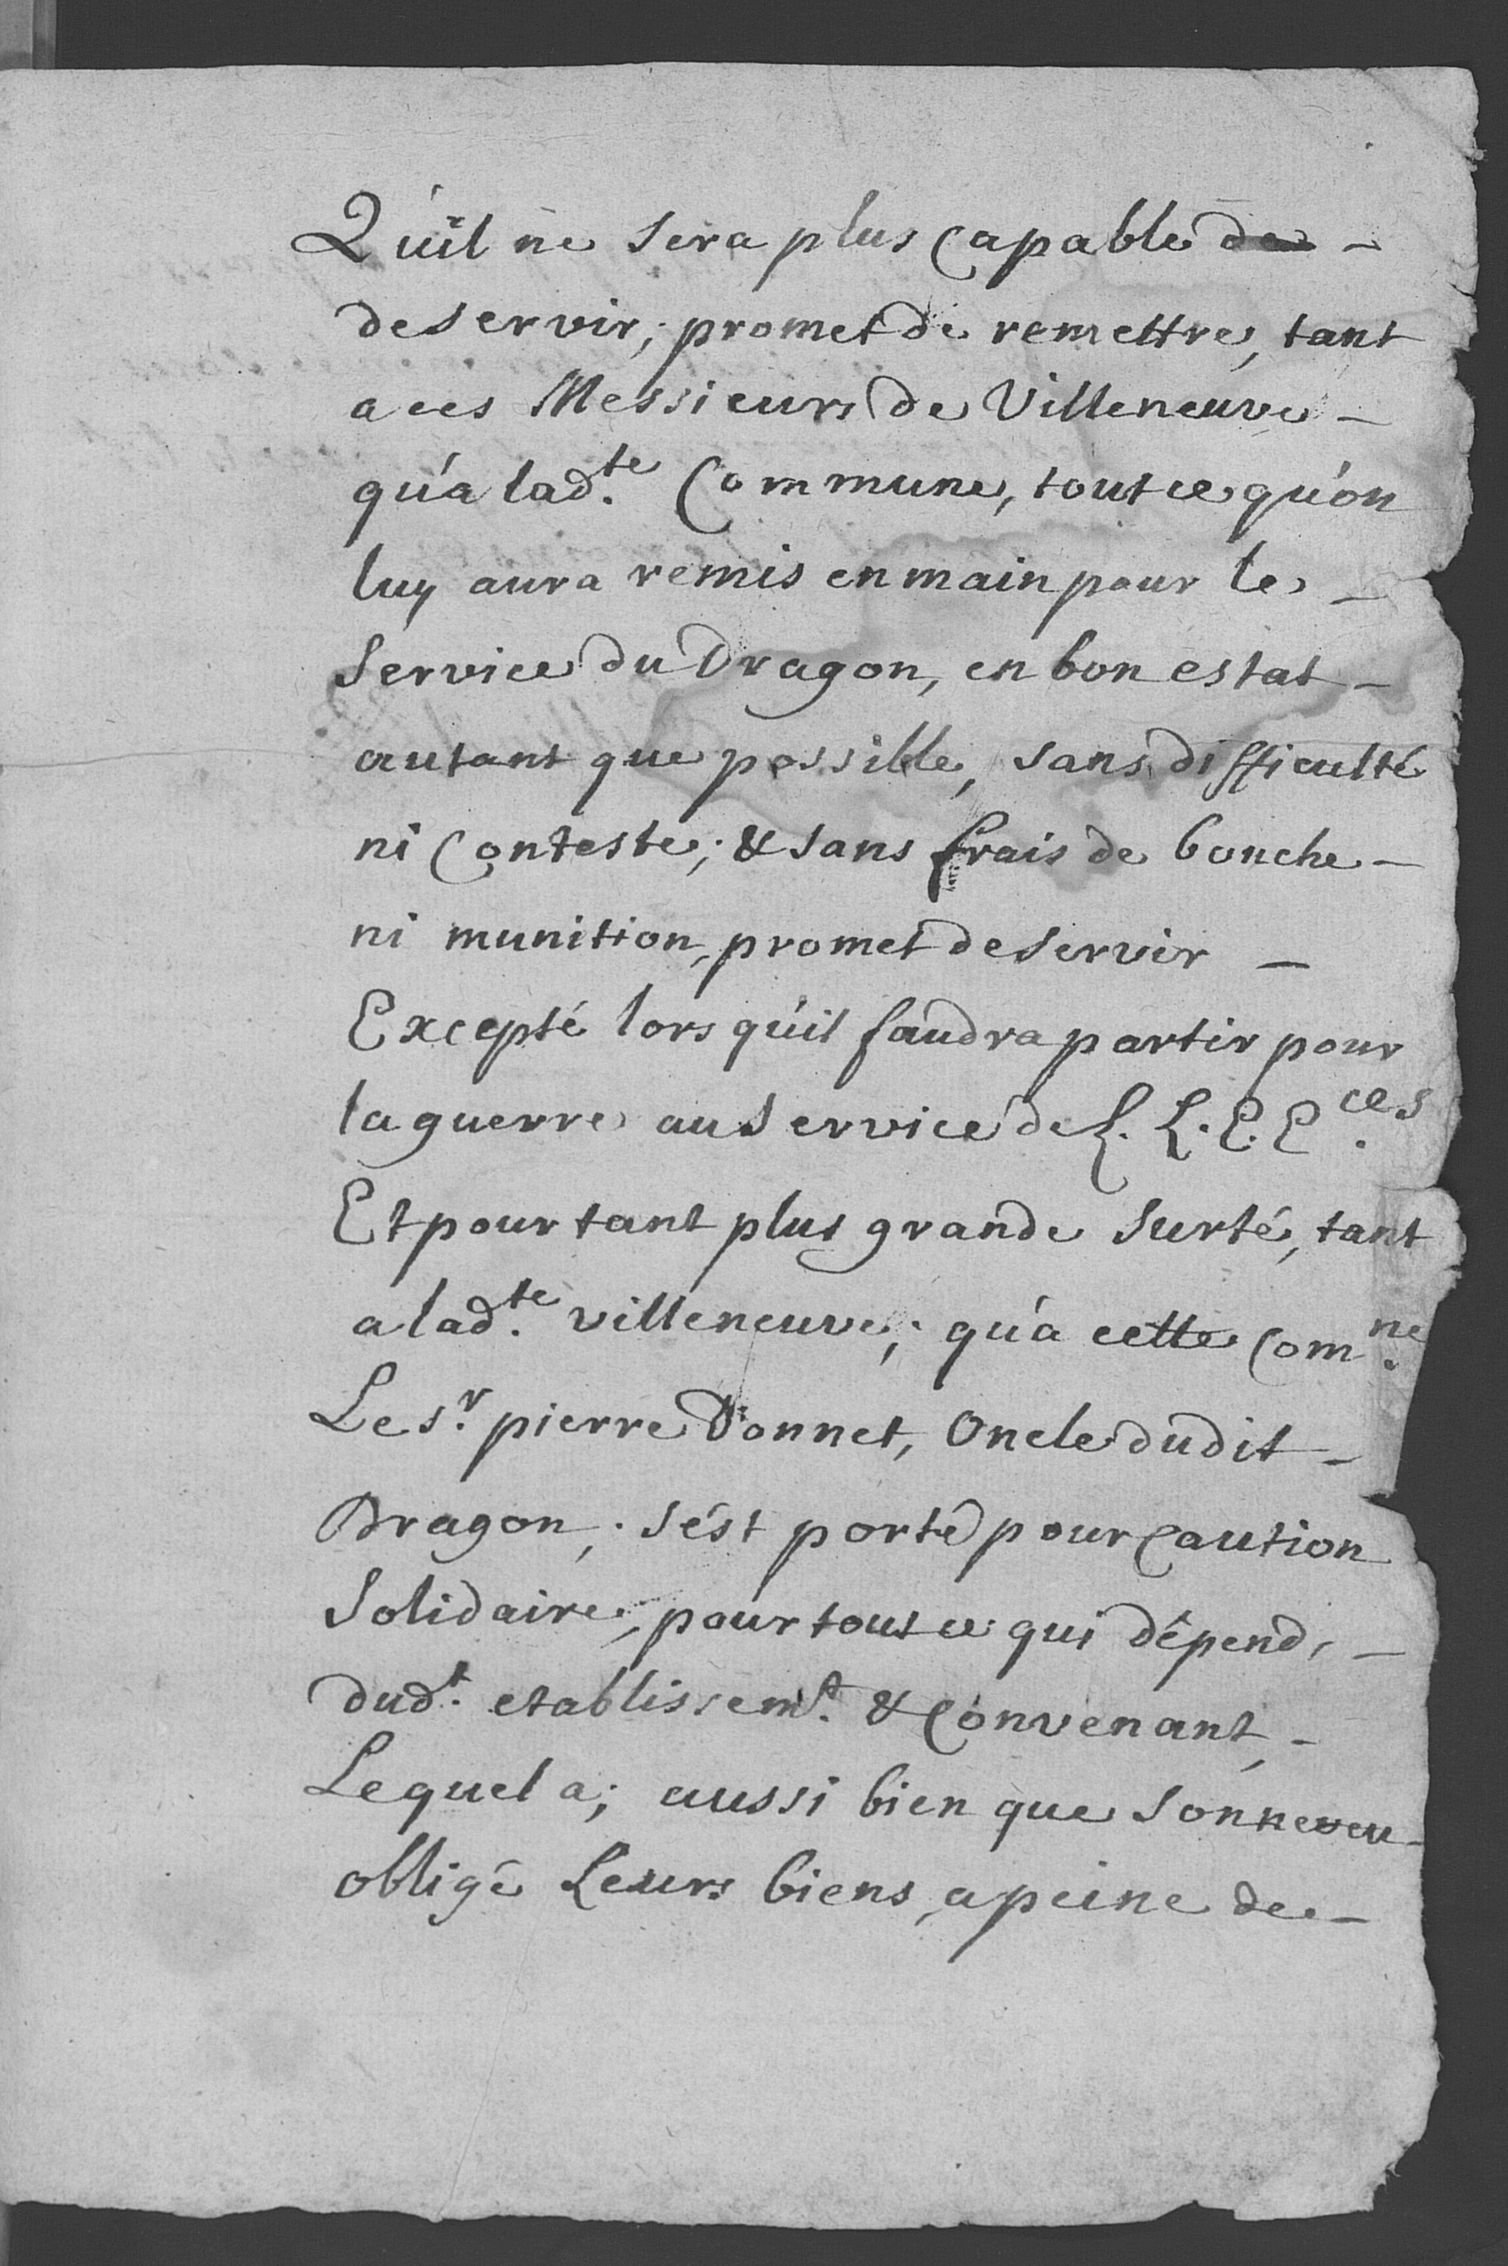 Qu'il ne sera plus Capable de –
de servir; promet de remettre, tant
a ces Messieurs de Villeneuve –
qu'a lad.te Commune, tout ce qu'on
luy aura remis en main pour le –
Service du Dragon, en bon estat –
autant que possible, sans difficulté
ni Conteste; & sans frais de bouche –
ni munition, promet de servir –
Excepté lors qu'il faudra partir pour
la guerre au service de L. L. E. E.ces
Et pour tant plus grande surté, tant
a lad.te villeneuve; qu'a cette Com.ne
Le s.r pierre Donnet, Oncle dudit –
Dragon; s'est porté pour Caution
Solidaire, pour tout ce qui dépend, –
dud.t etablissem.t & Convenant, –
Lequel a; aussi bien que son neveu –
obligé Leurs biens, a peine de –